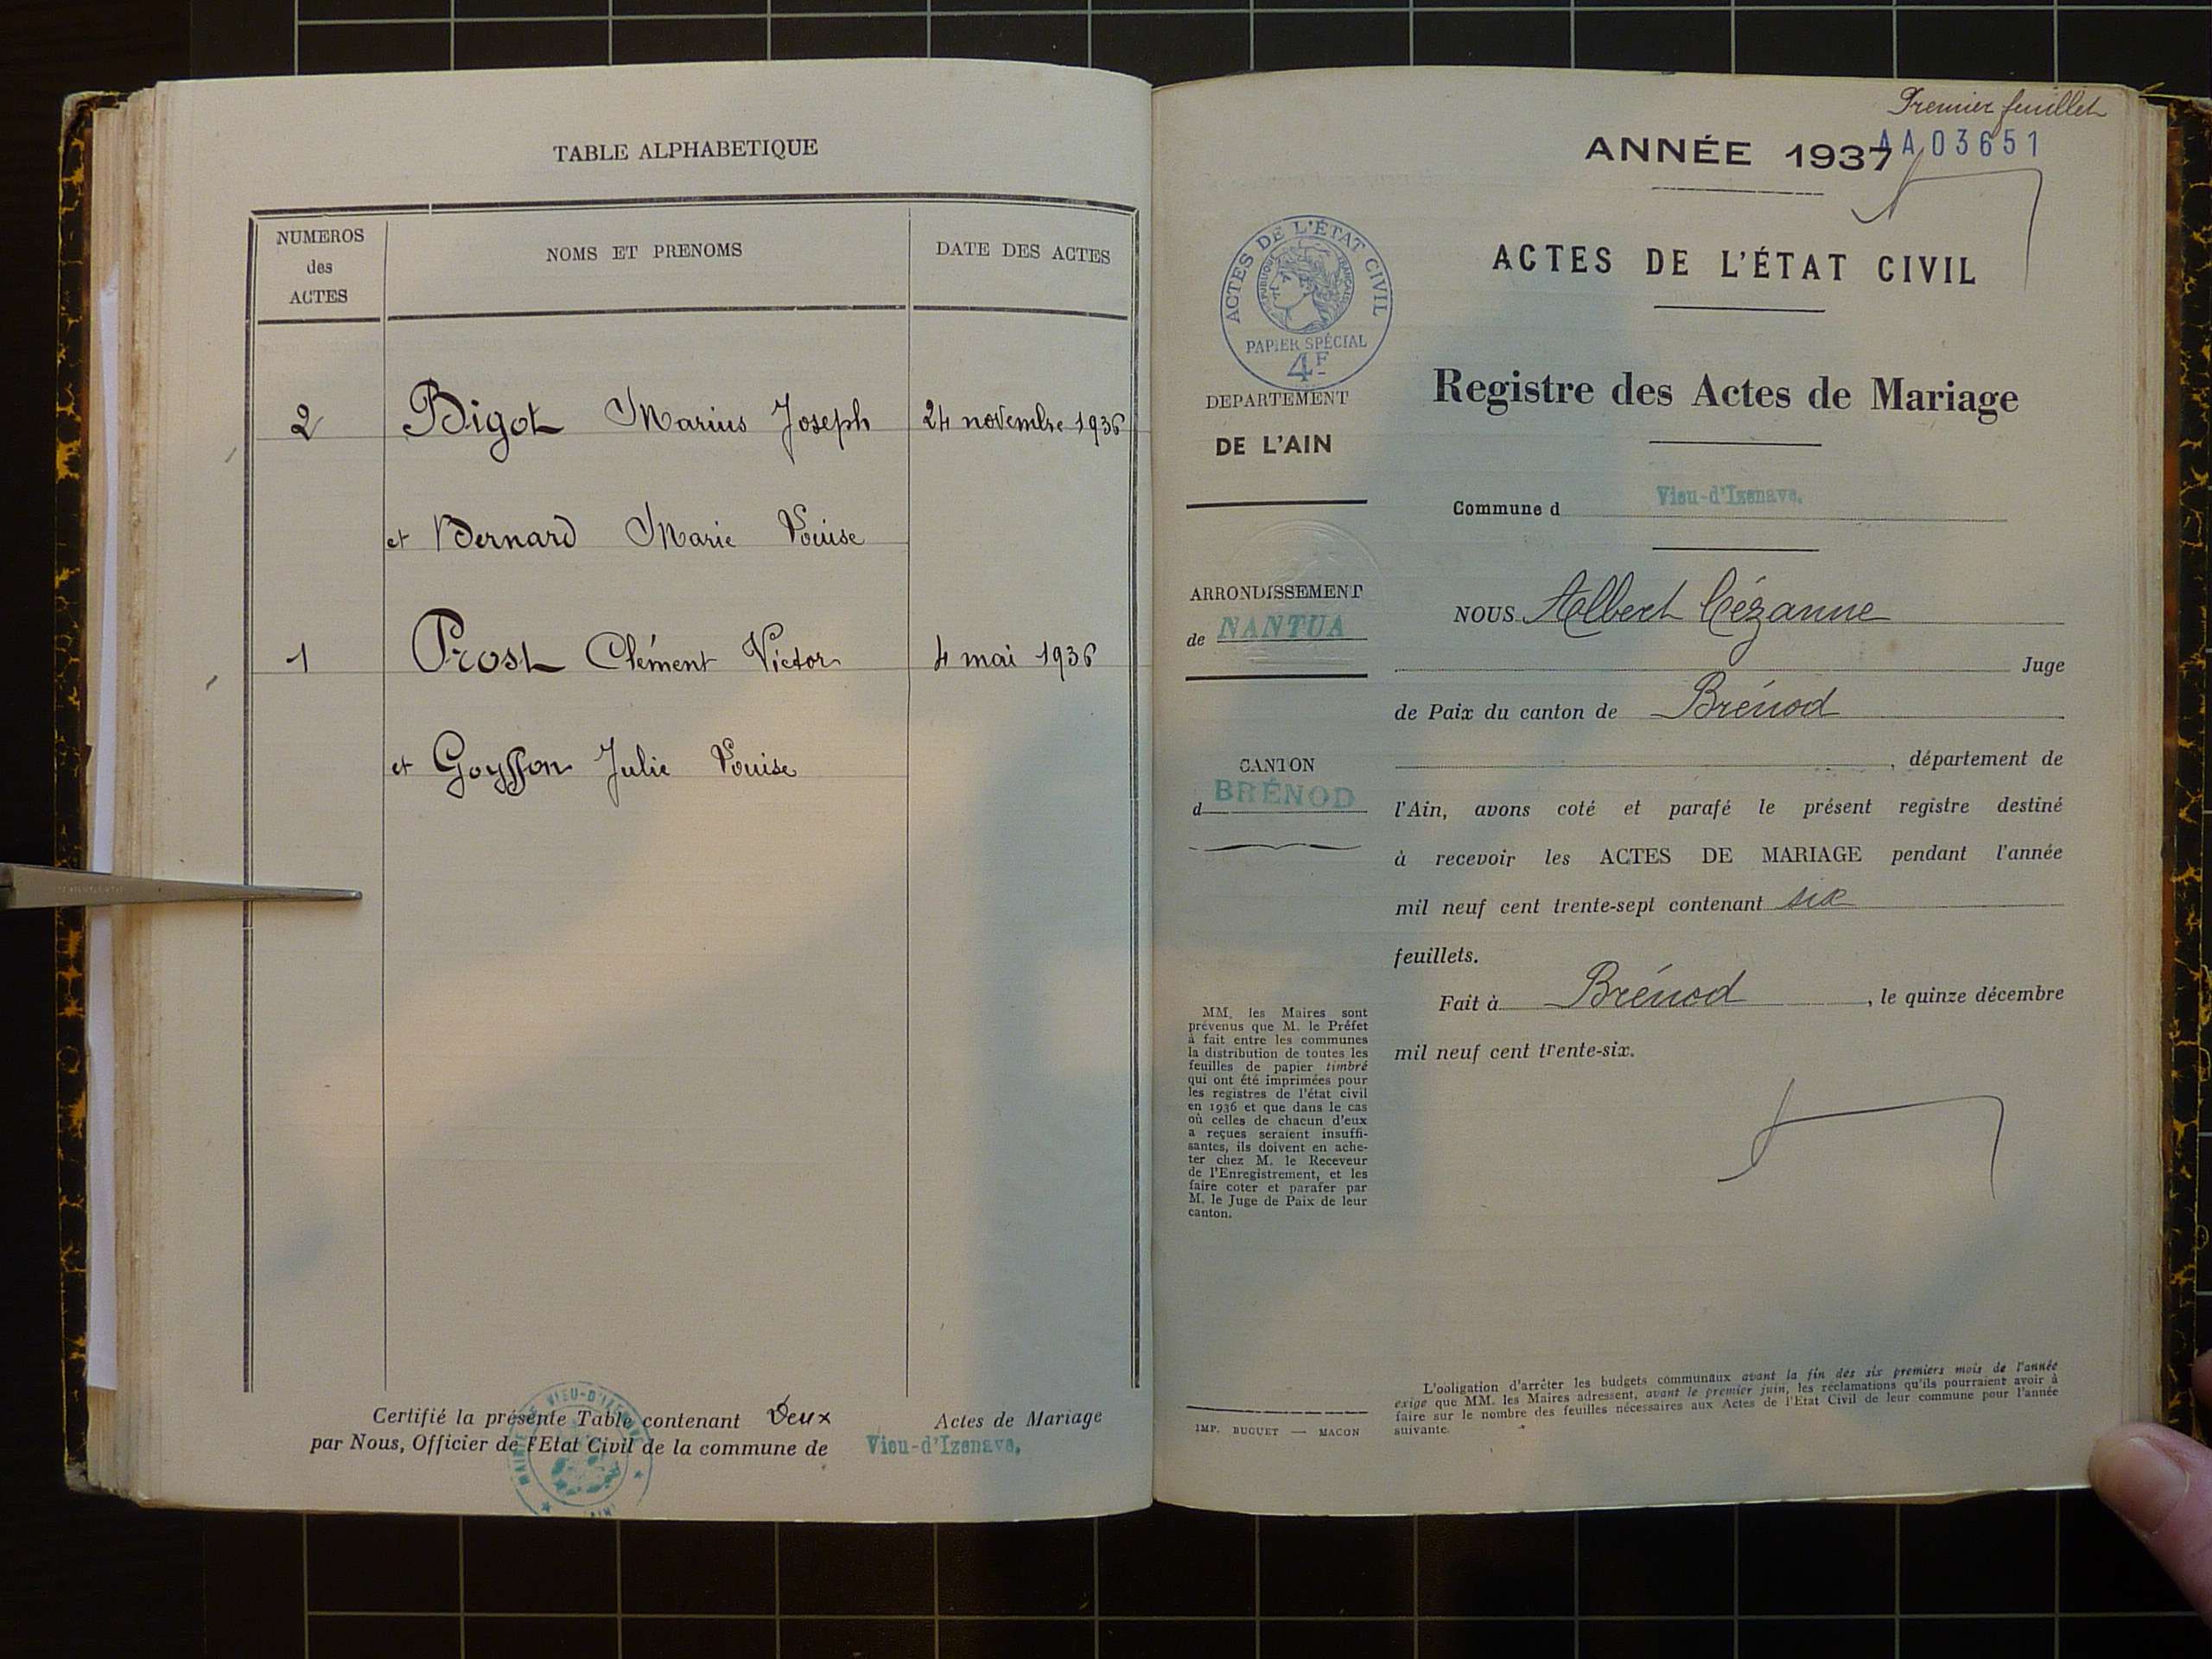 TABLE ALPHABETIQUE
NUMEROS
des
ACTES
NOMS ET PRENOMS
DATE DES ACTES
2 Bigot Marius Joseph 24 novembre 1936
et Bernard Marie Louise
1 Prost Clément Victor 4 mai 1936
et Goyffon Julie Louise
Certifié la présente Table contenant Deux Actes de Mariage
par Nous, Officier de l'Etat Civil de la commune de Vieu-d'Izenave.
Premier feuillet
ANNÉE 1937
AA03651
ACTES DE L'ÉTAT CIVIL
RÉPUBLIQUE FRANÇAISE
PAPIER SPÉCIAL
4F
ACTES DE L'ÉTAT CIVIL
Registre des Actes de Mariage
DEPARTEMENT
DE L'AIN
Commune d Vieu-d'Izenave.
ARRONDISSEMENT
de NANTUA
CANTON
d BRÉNOD
NOUS Albert Cézanne
Juge
de Paix du canton de Brénod
, département de
l'Ain, avons coté et parafé le présent registre destiné
à recevoir les ACTES DE MARIAGE pendant l'année
mil neuf cent trente-sept contenant six
feuillets.
Fait à Brénod, le quinze décembre
mil neuf cent trente-six.
MM. les Maires sont
prévenus que M. le Préfet
à fait entre les communes
la distribution de toutes les
feuilles de papier timbré
qui ont été imprimées pour
les registres de l'état civil
en 1936 et que dans le cas
où celles de chacun d'eux
a reçues seraient insuffi-
santes, ils doivent en ache-
ter chez M. le Receveur
de l'Enregistrement, et les
faire coter et parafer par
M. le Juge de Paix de leur
canton.
IMP. BUGUET — MACON
L'obligation d'arrêter les budgets communaux avant la fin des six premiers mois de l'année
exige que MM. les Maires adressent, avant le premier juin, les réclamations qu'ils pourraient avoir à
faire sur le nombre des feuilles nécessaires aux Actes de l'Etat Civil de leur commune pour l'année
suivante.